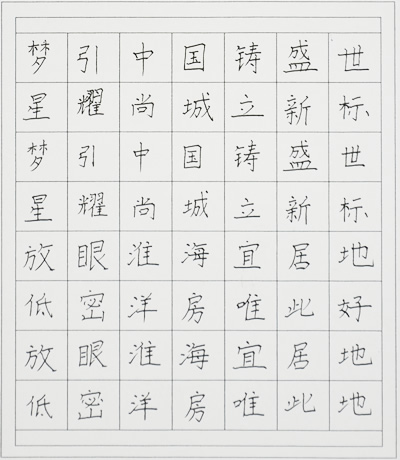 梦引中国铸盛世
星耀尚城立新标
梦引中国铸盛世
星耀尚城立新标
放眼淮海宜居地
低密洋房唯此好
放眼淮海宜居地
低密洋房唯此地